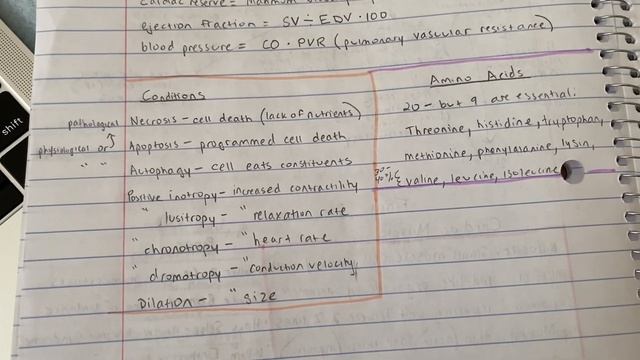 cardiac reserve = maximum
ejection fraction = SV ÷ EDV · 100
blood pressure = CO · PVR (pulmonary vascular resistance)
Conditions
pathological
Necrosis - cell death (lack of nutrients)
physiological or
Apoptosis - programmed cell death
" "
Autophagy - cell eats constituents
Positive inotropy - increased contractility
" lusitropy - " relaxation rate
" chronotropy - " heart rate
" dromotropy - " conduction velocity
Dilation - " size
Amino Acids
20 - but 9 are essential:
Threonine, histidine, tryptophan,
methionine, phenylalanine, lysin,
valine, leucine, isoleucine
shift